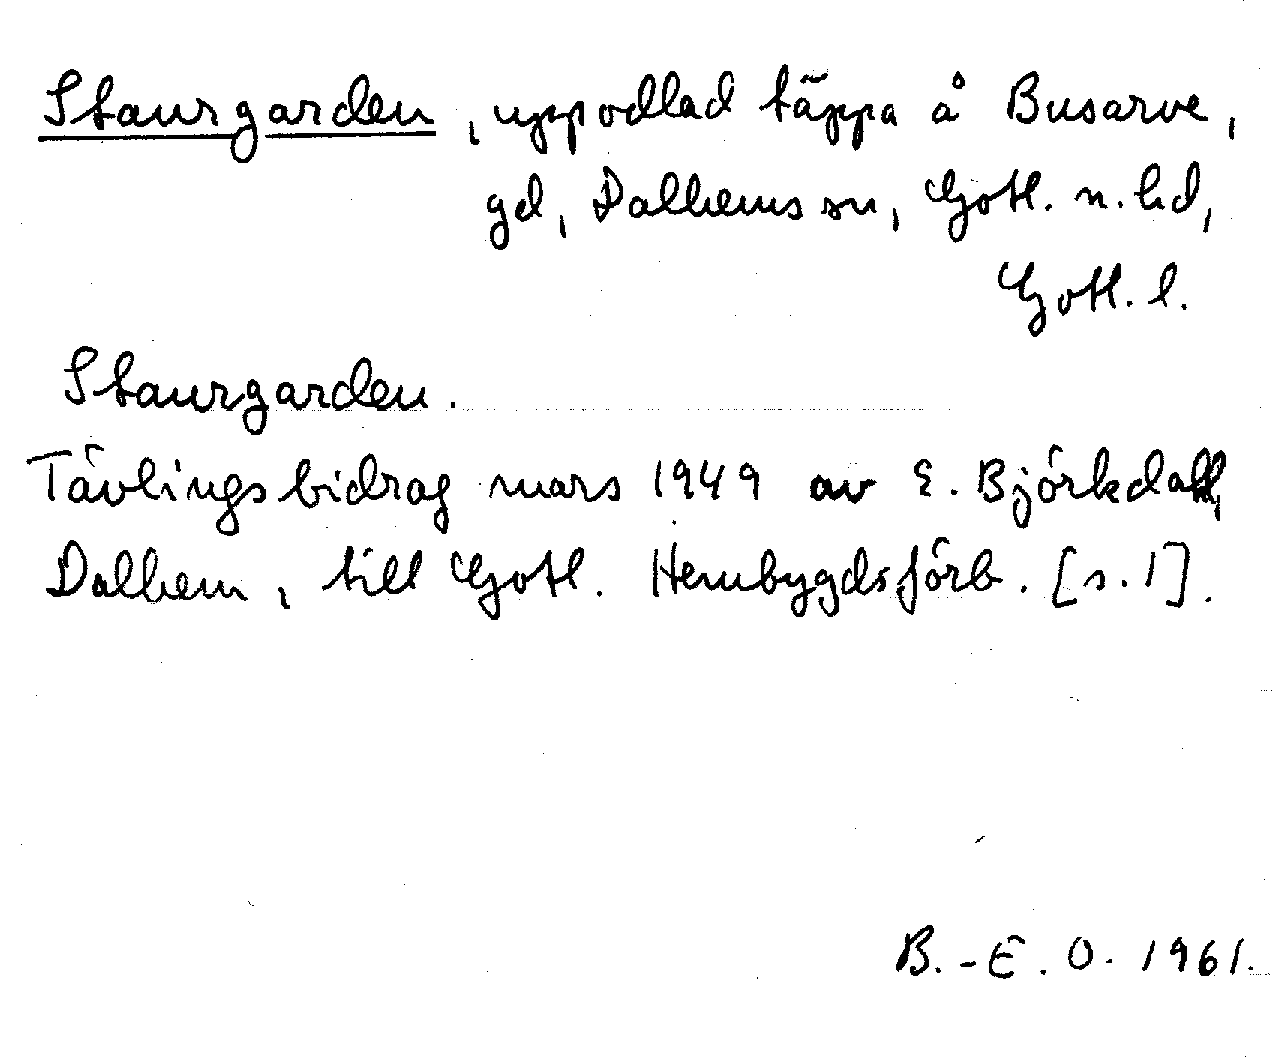 Staurgarden, uppodlad täppa å Busarve,
gd, Dalhems sn, Gotl. n. hd,
Gotl. l.
Staurgarden.
Tävlingsbidrag mars 1949 av E. Björkdahl,
Dalhem, till Gotl. Hembygdsförb. [s. 1].
B.-E. O. 1961.